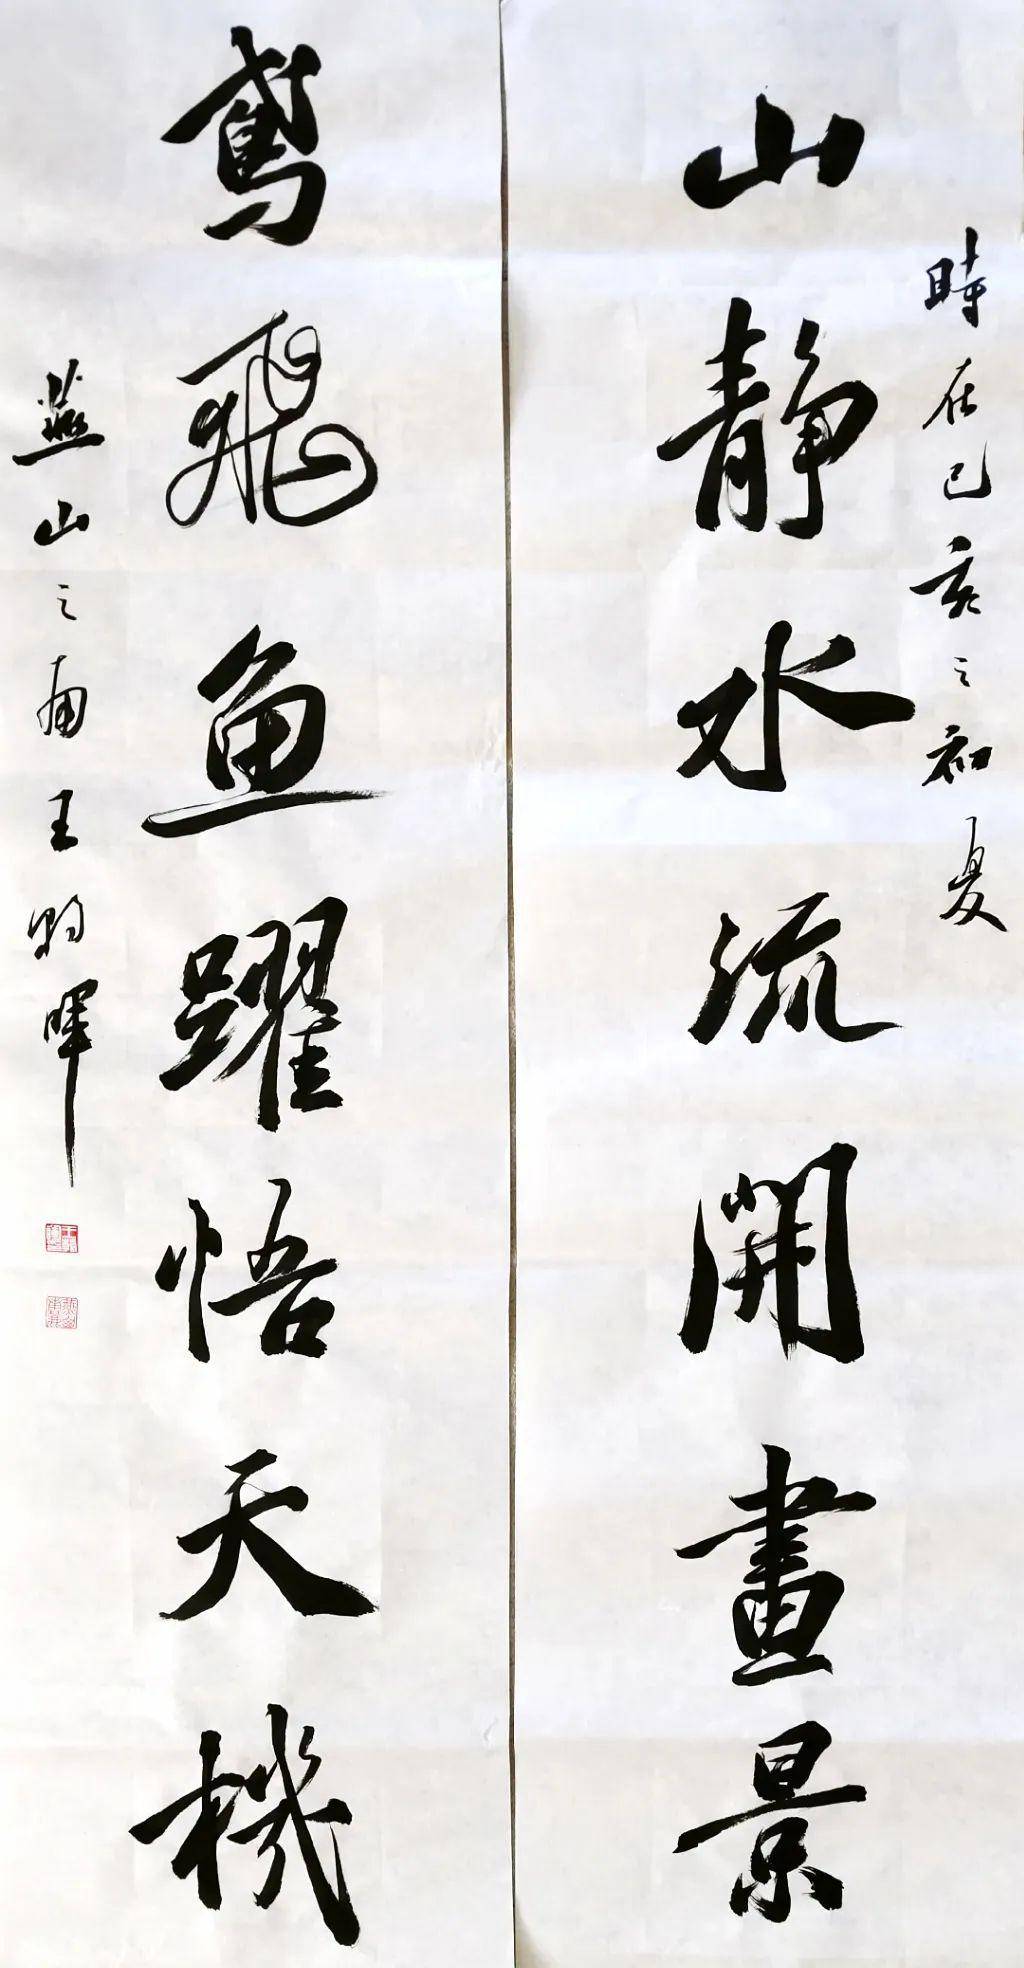 山静水流開畫景
時在己亥之初夏
鳶飛鱼躍悟天機
燕山之南王明暉